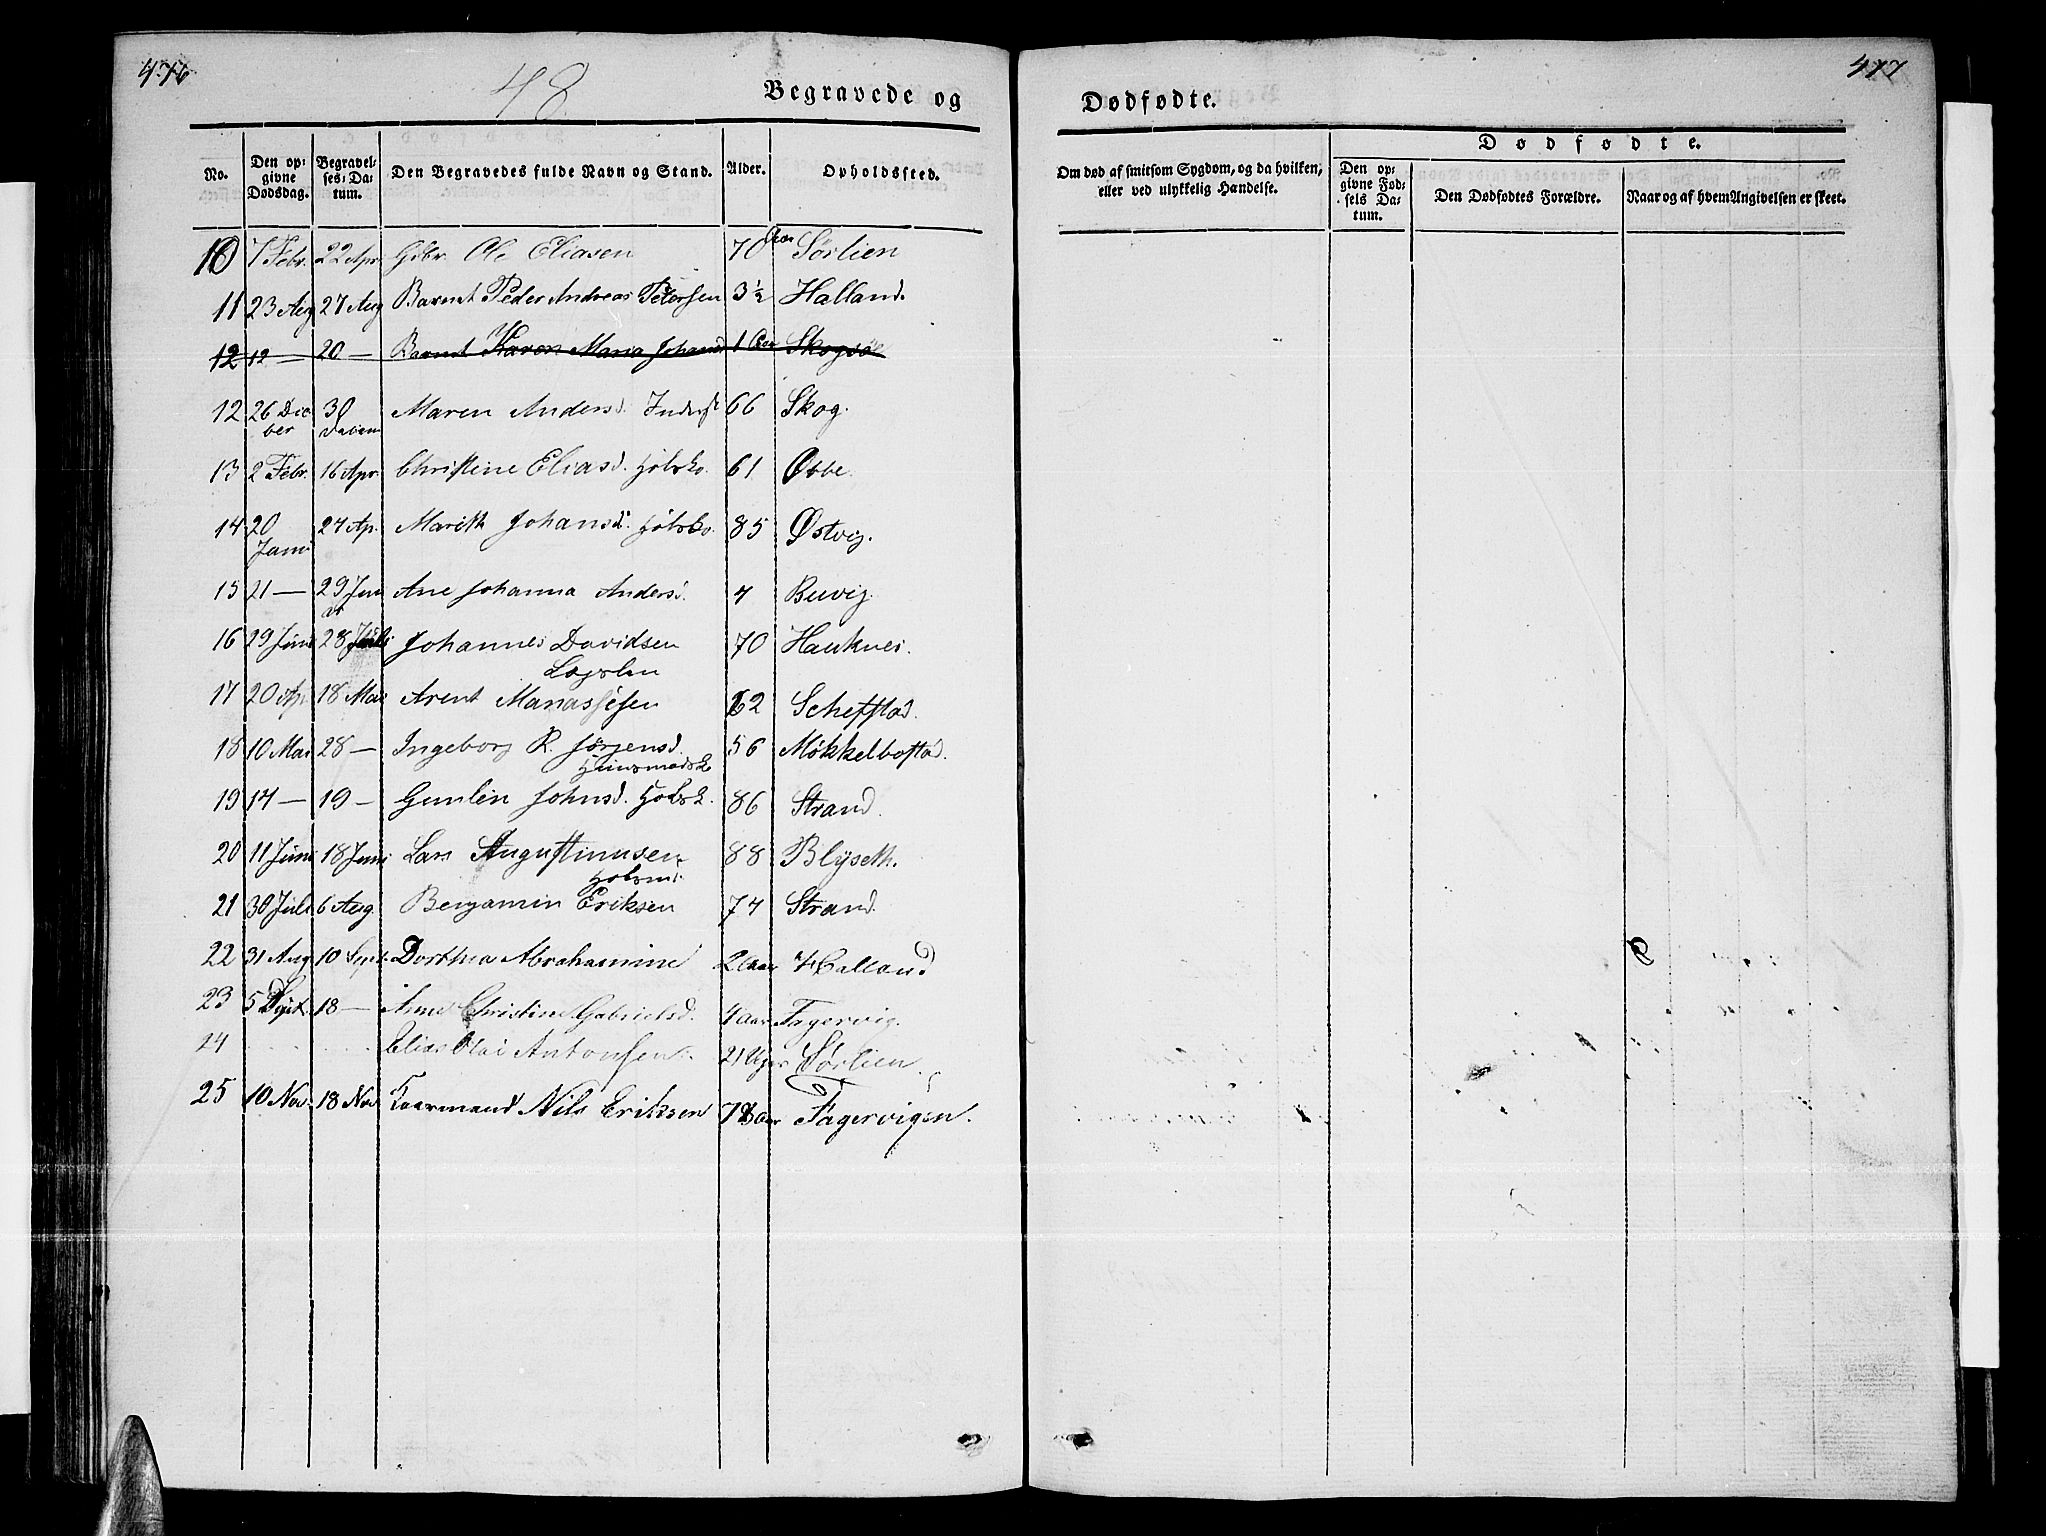 476
48
Begravede og
No.
Den op=
givne
Dødsdag.
Begravel=
ses=Da=
tum.
Den Begravedes fulde Navn og Stand.
Alder.
Opholdssted.
10 7 Febr. 22 Apr. Gdbr. Ole Eliasen 70 Aar Sørlien
11 23 Aug 27 Aug Barnet Peder Andreas Petersen 3½ Halland.
12 12 — 20 — Barnet Karen Maria Johansd 1 Aar Skogsø
12 26 Dec 30 Maren Andersd. Inderst 66 Skog.
ber
13 2 Febr. 16 Apr. Christine Eliasd. 61 Øsbe.
14 20 27 Ap. Marith Johansd. 85 Østvig.
Janu
15 21 — 29 Jan Ane Johanna Andersd. 4 Buvig.
ar
16 29 Juni 28 Juli Johannes Davidsen 70 Hauknes.
Lægslem
17 20 Ap. 18 Mai Arent Manassesen 62 Scheffstad.
18 10 Mai 28 — Ingeborg R. Jørgensd. 56 Møkkelbostad.
Huusmandsk
19 14 — 19 — Gunlen Johnsd. 86 Strand.
20 11 Juni 18 Juni Lars Augustinusen 88 Blyseth.
21 30 Juli 6 Aug. Benjamin Eriksen 74 Strand.
22 31 Aug 10 Sept. Dorthea Abrahamine 2 Aar Halland
23 5 Sept. 18 — Anne Christine Gabrielsd. 4 Aar Fagervig.
24 Elias Olai Antonsen 21 Uger Sørlien.
25 10 Nov. 18 Nov Kaarmand Nils Eriksen 78 Aar Fagervigen.
477
Dødfødte.
Om død af smitsom Sygdom, og da hvilken,
eller ved ulykkelig Hændelse.
Dødfødte.
Den op=
givne Fød=
sels Da=
tum.
Den Dødfødtes Forældre.
Naar og af hvem Angivelsen er skeet.